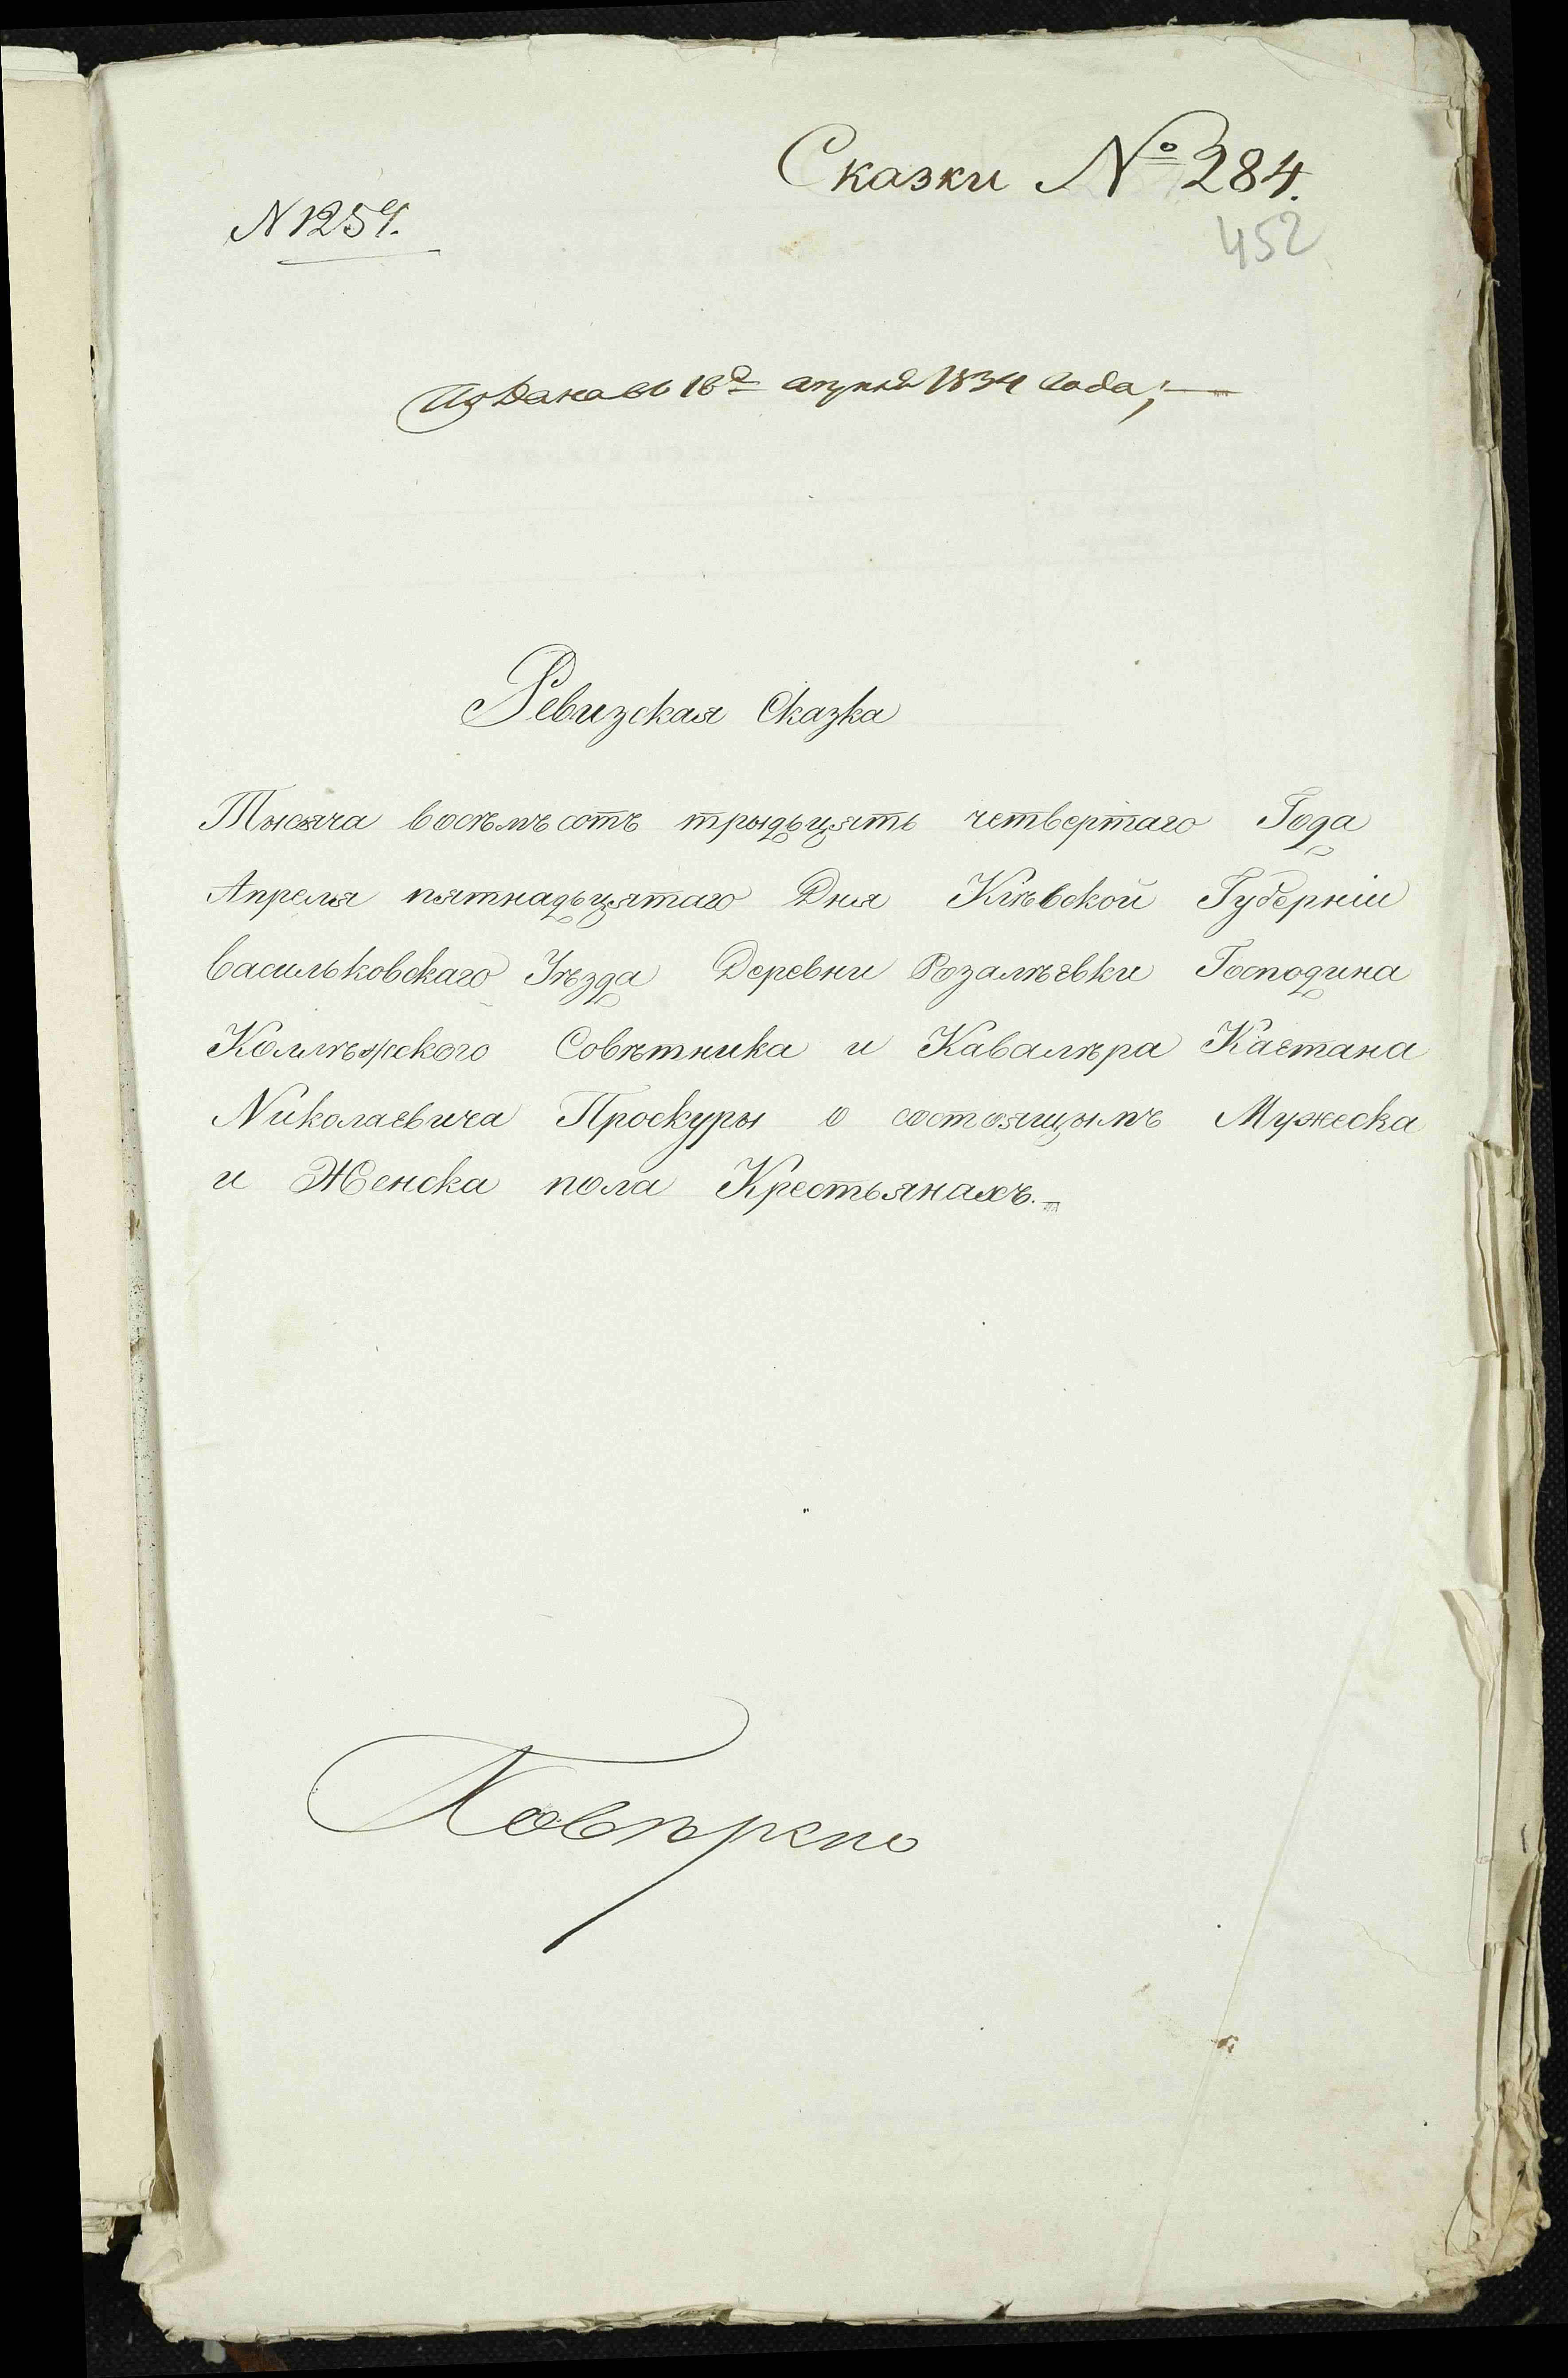 Сказки № 284.
N 1259.
452
Подана въ 16е апреля 1834 года;
Ревизская Сказка
Тысяча восѣмъ сотъ трыдьцять четвертаго Года
Апреля пятнадьцятаго Дня Кіѣвской Губерніи
Васильковскаго Уѣзда Деревни Розалѣевки Господина
Коллѣжского Совѣтника и Кавалѣра Каетана
Николаевича Проскуры о состоящымъ Мужеска
и Женска пола Крестьянахъ.
Повѣрено